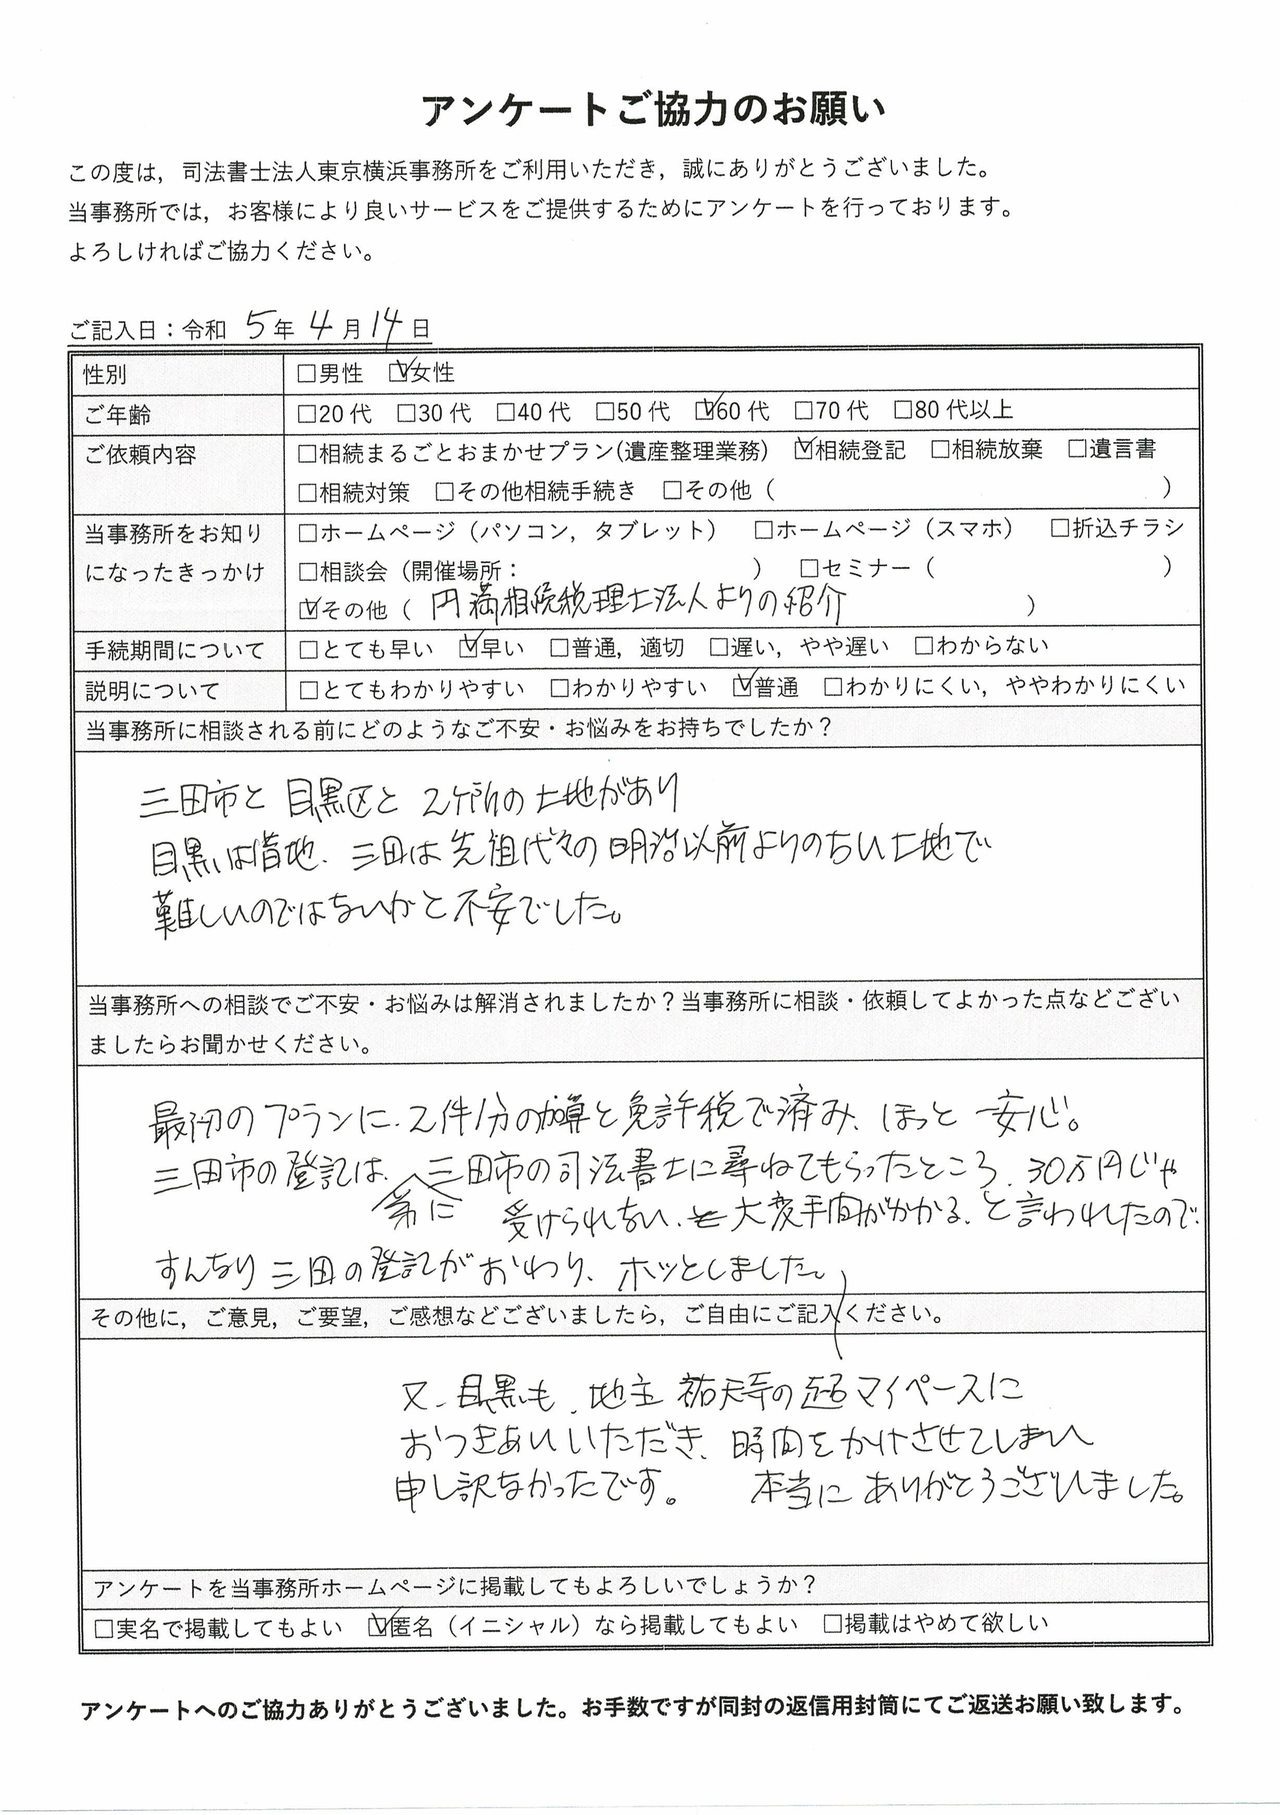 アンケートご協力のお願い
この度は，司法書士法人東京横浜事務所をご利用いただき，誠にありがとうございました。
当事務所では，お客様により良いサービスをご提供するためにアンケートを行っております。
よろしければご協力ください。
ご記入日：令和 5年 4月 14日
性別 □男性 ☑女性
ご年齢 □20代 □30代 □40代 □50代 ☑60代 □70代 □80代以上
ご依頼内容 □相続まるごとおまかせプラン(遺産整理業務) ☑相続登記 □相続放棄 □遺言書
□相続対策 □その他相続手続き □その他（ ）
当事務所をお知り □ホームページ（パソコン，タブレット） □ホームページ（スマホ） □折込チラシ
になったきっかけ □相談会（開催場所： ） □セミナー（ ）
☑その他（ 円満相続税理士法人よりの紹介 ）
手続期間について □とても早い ☑早い □普通，適切 □遅い，やや遅い □わからない
説明について □とてもわかりやすい □わかりやすい ☑普通 □わかりにくい，ややわかりにくい
当事務所に相談される前にどのようなご不安・お悩みをお持ちでしたか？
三田市と 目黒区と 2ヶ所の土地があり
目黒は借地、三田は先祖代々の明治以前よりの古い土地で
難しいのではないかと不安でした。
当事務所への相談でご不安・お悩みは解消されましたか？当事務所に相談・依頼してよかった点などござい
ましたらお聞かせください。
最初のプランに、2件分の加算と免許税で済み、ほっと 一安心。
三田市の登記は、弟に三田市の司法書士に尋ねてもらったところ、30万円じゃ
受けられない、大変手間がかかる、と言われたので、
すんなり三田の登記がおわり、ホッとしました。
その他に，ご意見，ご要望，ご感想などございましたら，ご自由にご記入ください。
又、目黒も、地主 祐天寺の超マイペースに
おつきあいいただき、時間をかけさせてしまい
申し訳なかったです。 本当にありがとうございました。
アンケートを当事務所ホームページに掲載してもよろしいでしょうか？
□実名で掲載してもよい ☑匿名（イニシャル）なら掲載してもよい □掲載はやめて欲しい
アンケートへのご協力ありがとうございました。お手数ですが同封の返信用封筒にてご返送お願い致します。